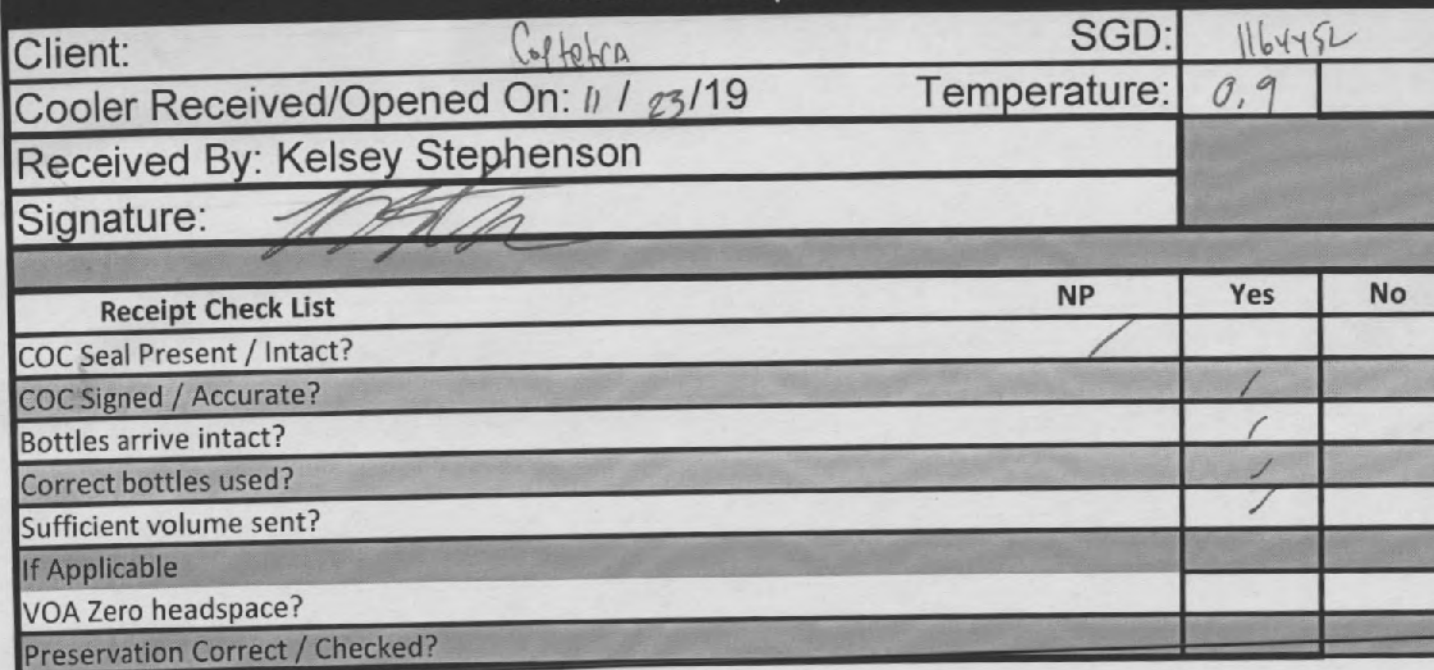 Client: Coptetra SGD: 1164452
Cooler Received/Opened On: 11 / 23/19 Temperature: 0.9
Received By: Kelsey Stephenson
Signature:
Receipt Check List NP Yes No
COC Seal Present / Intact? /
COC Signed / Accurate? /
Bottles arrive intact? /
Correct bottles used? /
Sufficient volume sent? /
If Applicable
VOA Zero headspace?
Preservation Correct / Checked?